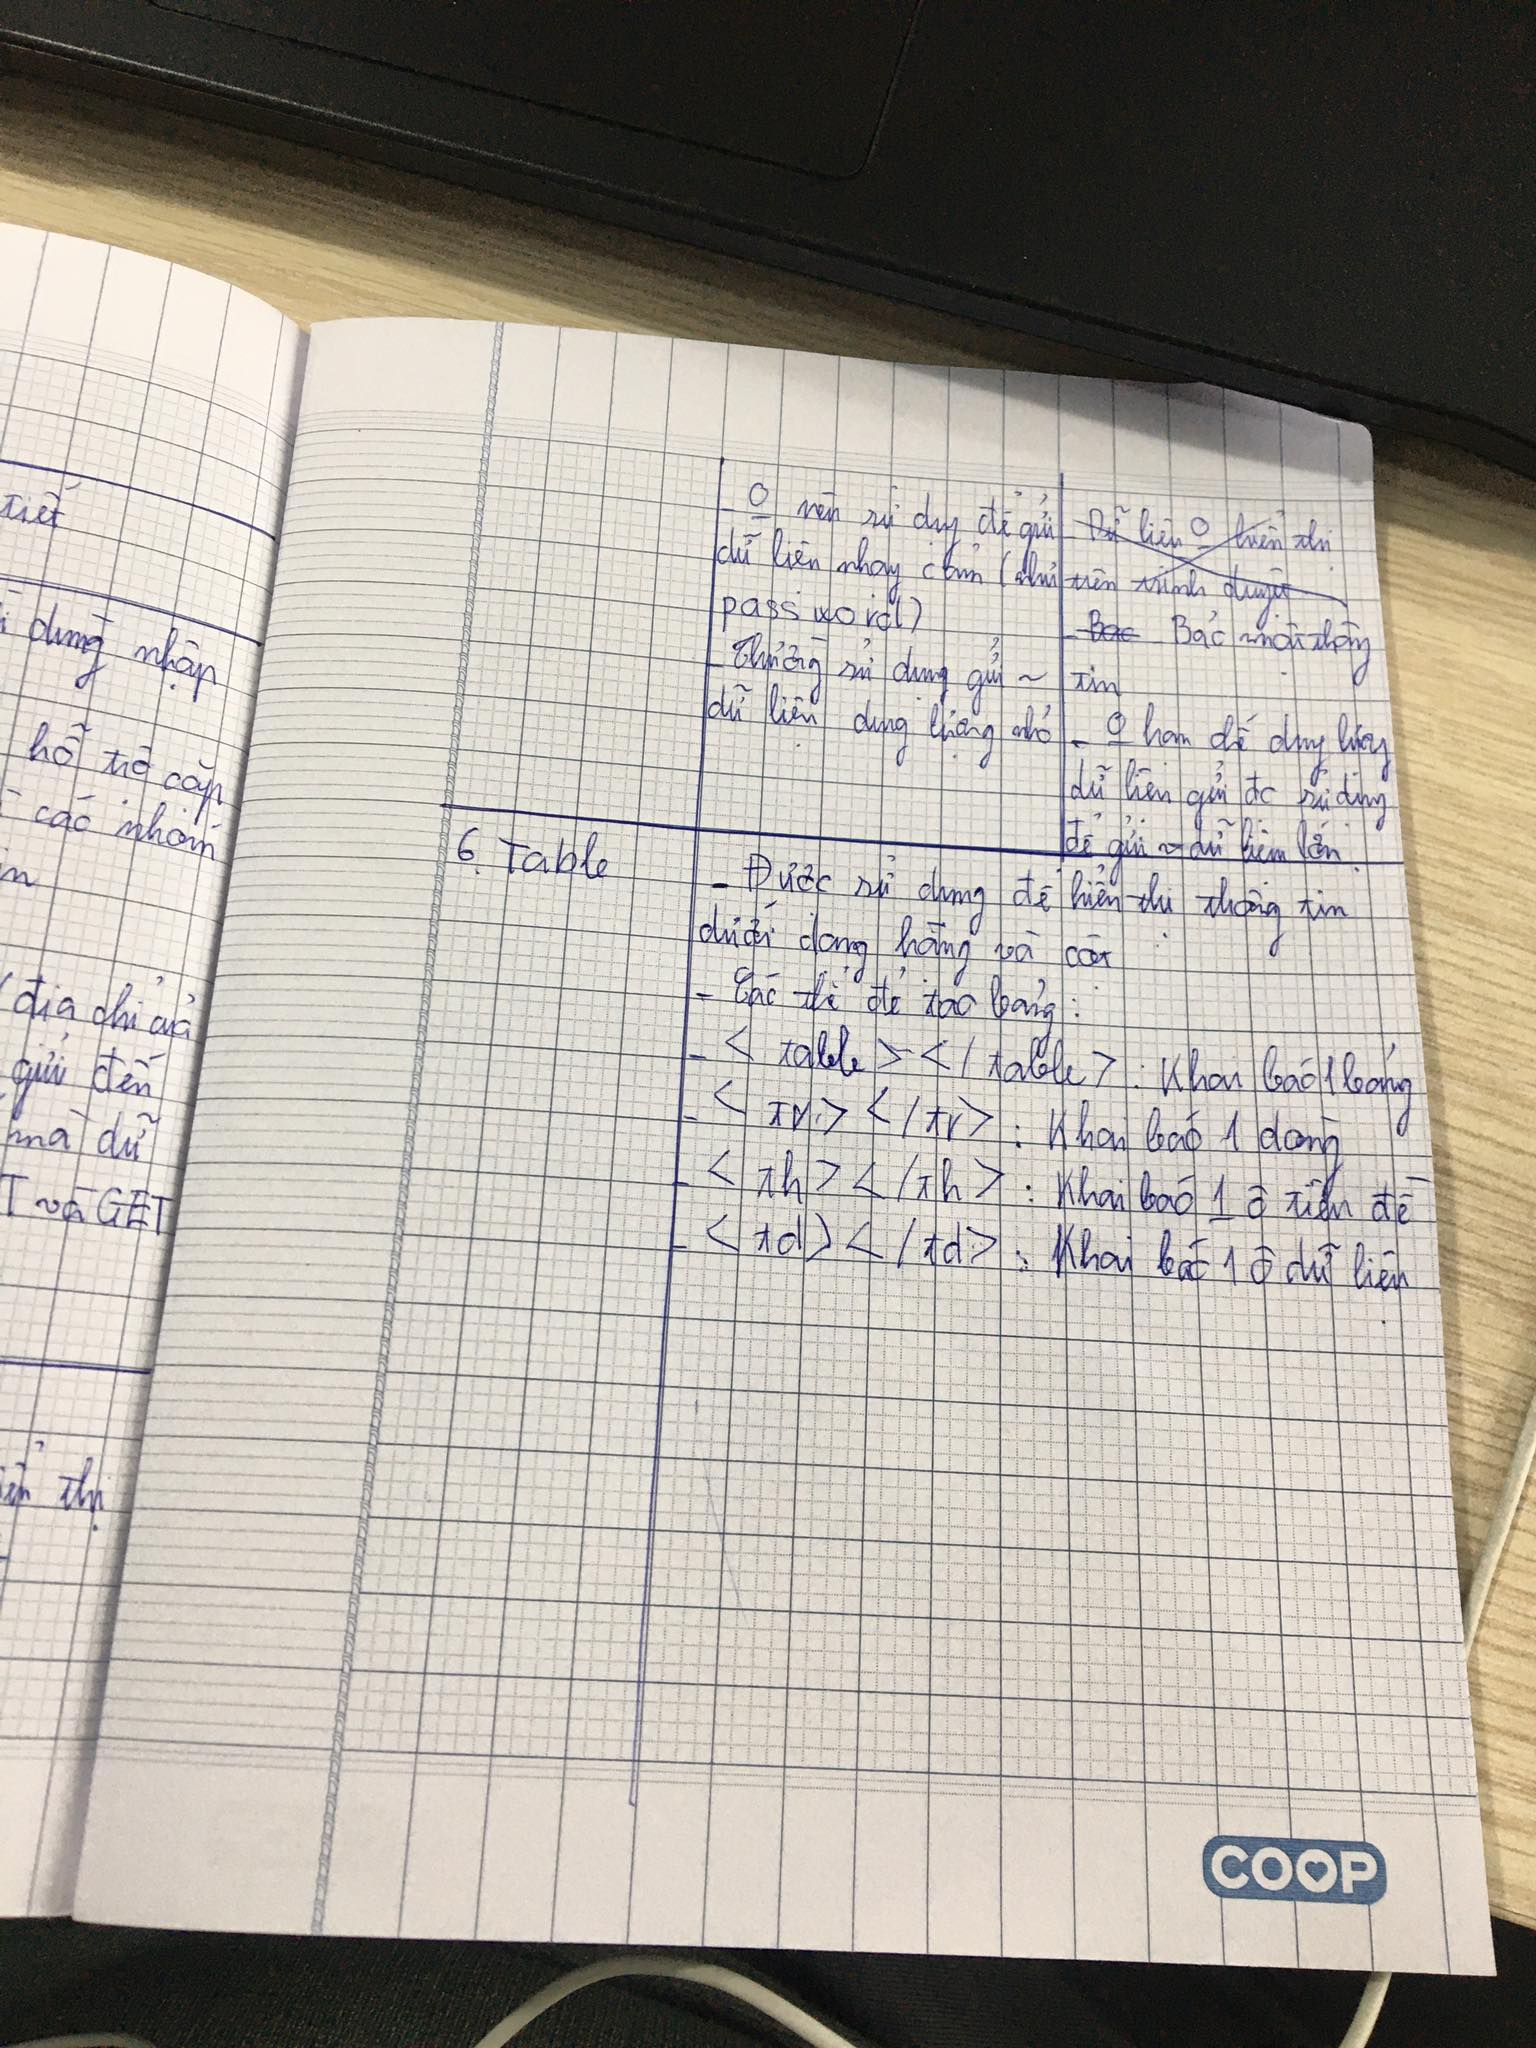 tiết
dùng nhập
hỗ trợ cập
các nhóm
(địa chỉ của
gửi đến
mà dữ
T và GET
thị
- O nên sử dụng để gửi
dữ liệu nhạy cảm (như
password)
- Thường sử dụng gửi ~
dữ liệu dung lượng nhỏ
- Dữ liệu O hiển thị
trên trình duyệt
- Bac Bảo mật thông
tin
- O hạn chế dung lượng
dữ liệu gửi đc sử dụng
để gửi ~ dữ liệu lớn
6. Table
- Được sử dụng để hiển thị thông tin
dưới dạng hàng và cột
- Các thẻ để tạo bảng:
- < table > </ table > : Khai báo 1 bảng
- < tr > </tr> : Khai báo 1 dòng
- < th > </th> : Khai báo 1 ô tiền đề
- < td > </td> : Khai báo 1 ô dữ liệu
COOP